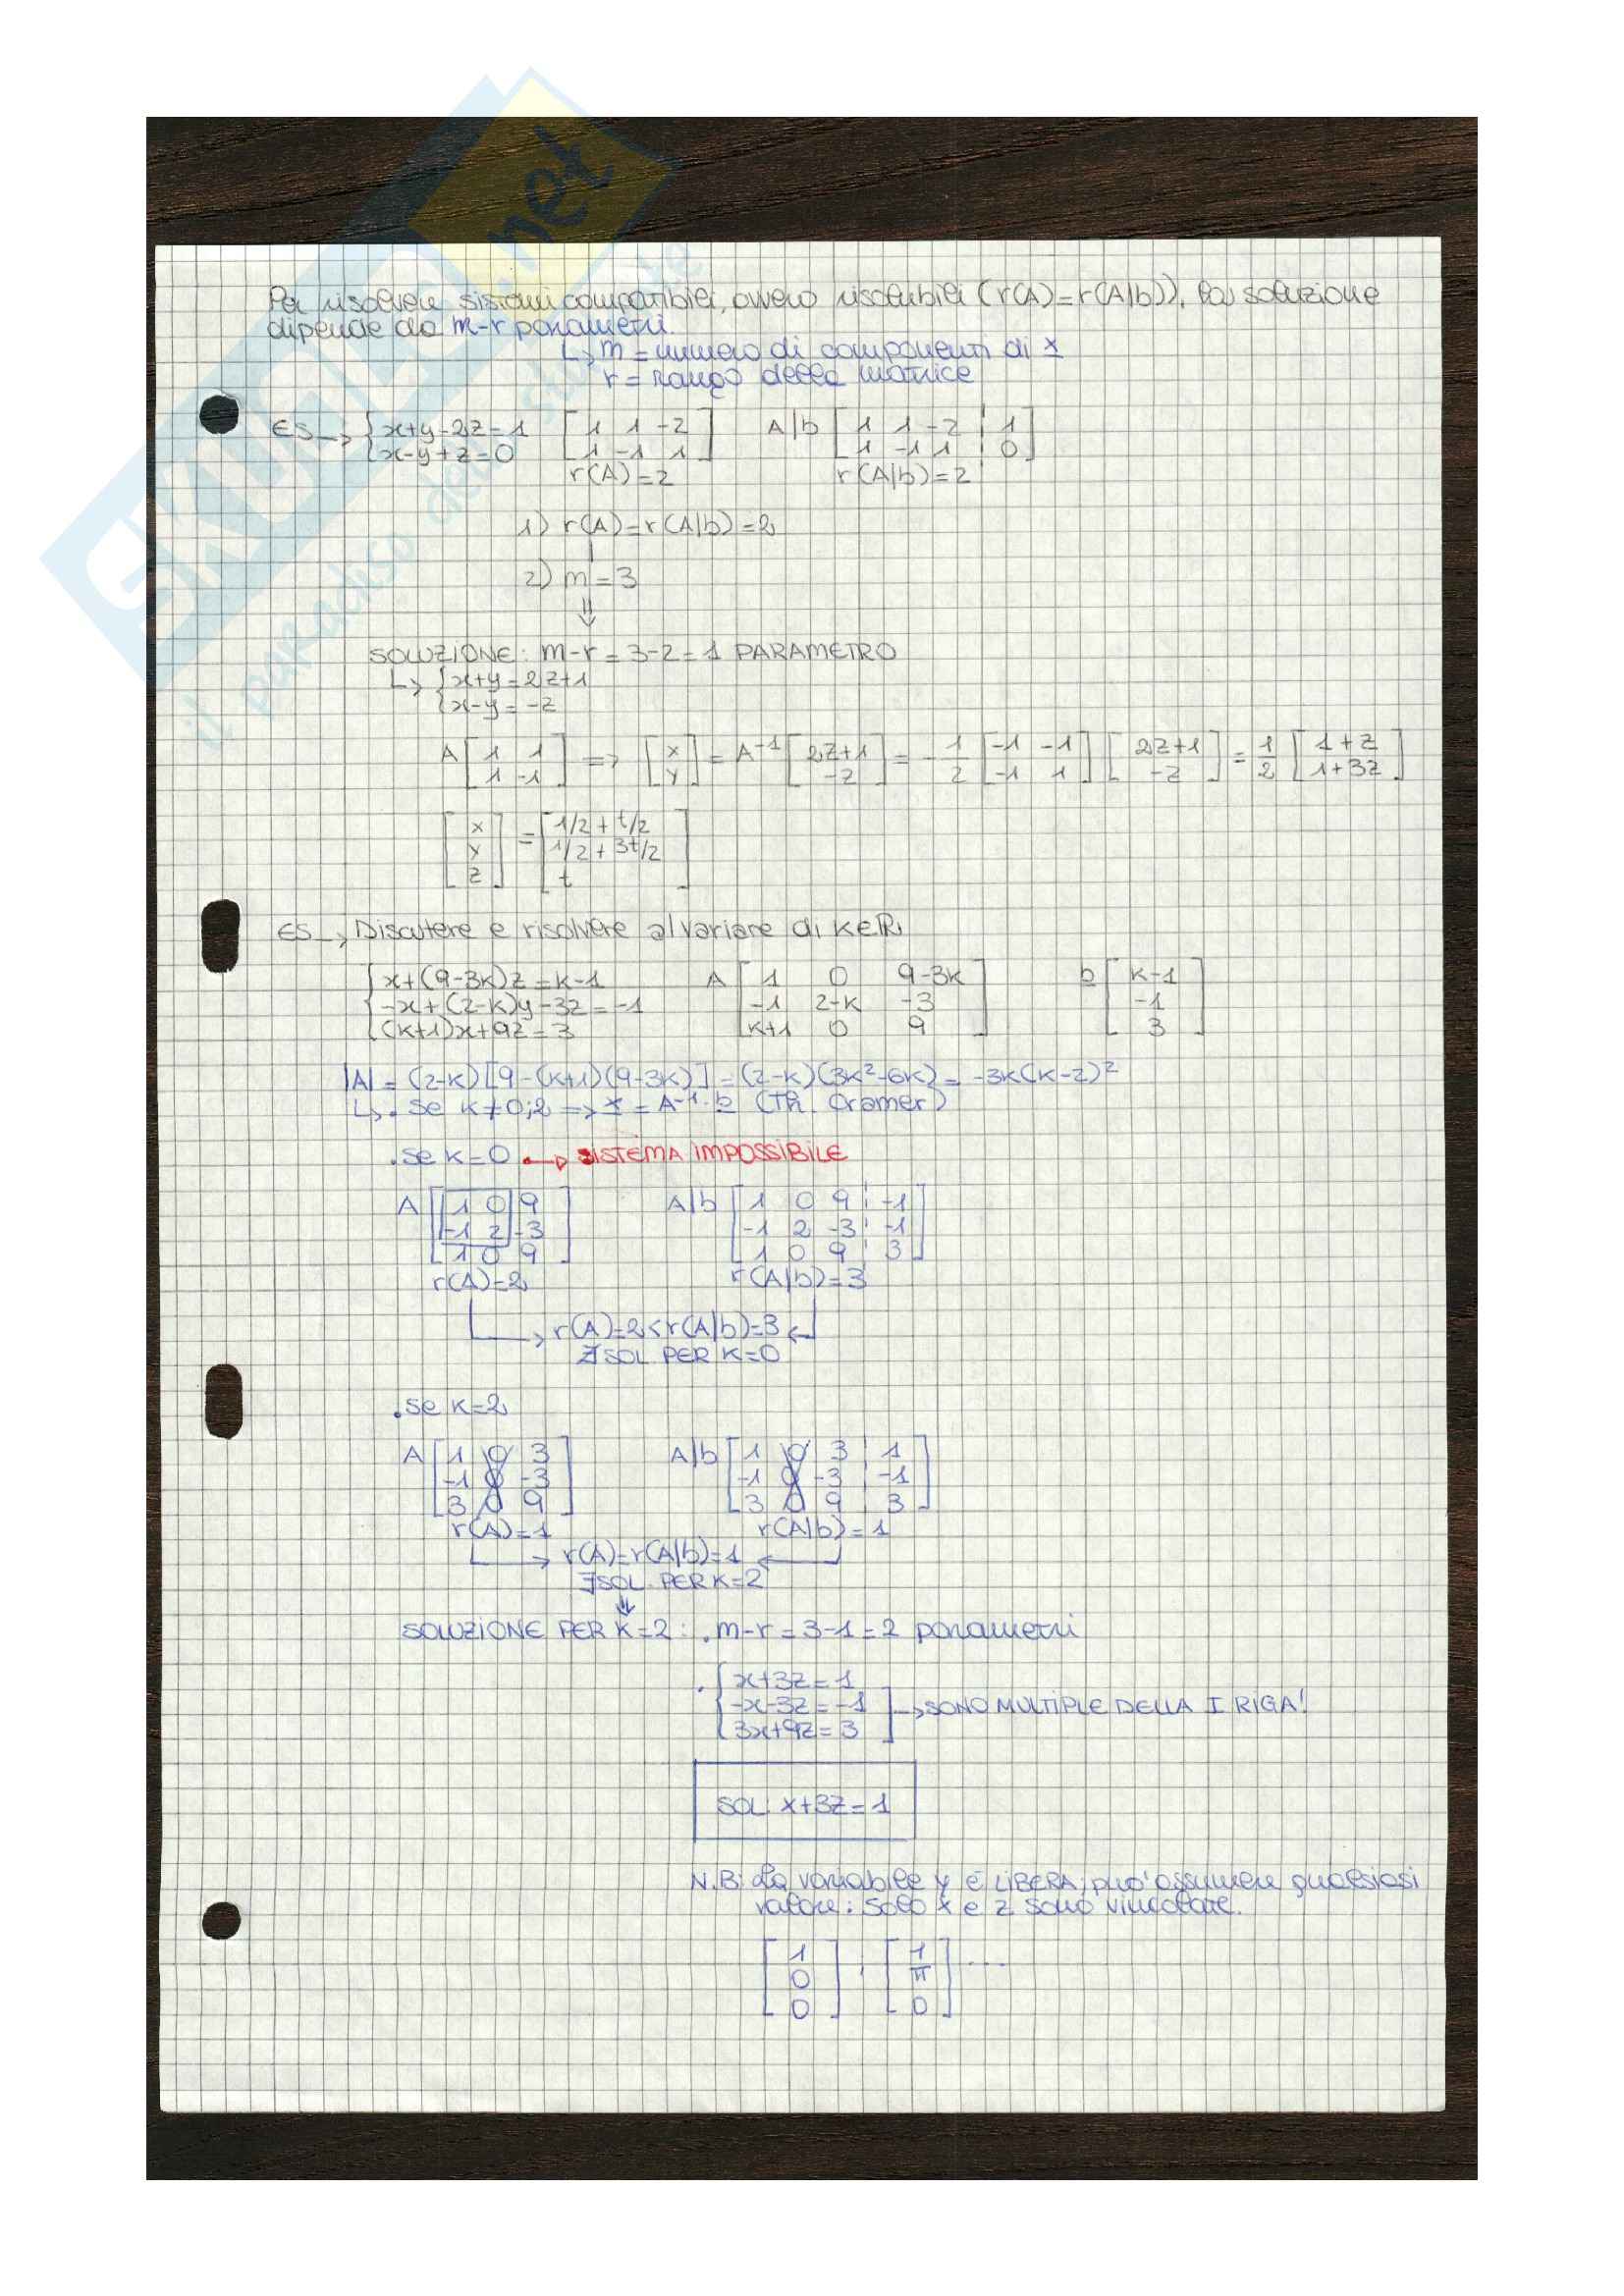 SKUOLA.net
il paradiso dello studente
Per risolvere sistemi compatibili, ovvero risolubili (r(A)=r(A|b)), la soluzione
dipende da m-r parametri.
↳ m = numero di componenti di x
r = rango della matrice
ES → { x+y-2z=1 [ 1 1 -2 ] A|b [ 1 1 -2 ¦ 1 ]
{ x-y+z=0 [ 1 -1 1 ] [ 1 -1 1 ¦ 0 ]
r(A)=2 r(A|b)=2
1) r(A)=r(A|b)=2
2) m=3
⇓
SOLUZIONE: m-r=3-2=1 PARAMETRO
↳ { x+y=2z+1
{ x-y=-z
A [ 1 1 ] => [ x ] = A^-1 [ 2z+1 ] = -1/2 [ -1 -1 ] [ 2z+1 ] = 1/2 [ 1+z ]
[ 1 -1 ] [ y ] [ -z ] [ -1 1 ] [ -z ] [ 1+3z ]
[ x ] = [ 1/2 + t/2 ]
[ y ] [ 1/2 + 3t/2 ]
[ z ] [ t ]
ES → Discutere e risolvere al variare di k∈R
{ x+(9-3k)z=k-1 A [ 1 0 9-3k ] b [ k-1 ]
{ -x+(2-k)y-3z=-1 [ -1 2-k -3 ] [ -1 ]
{ (k+1)x+9z=3 [ k+1 0 9 ] [ 3 ]
|A| = (2-k)[9-(k+1)(9-3k)] = (2-k)(3k²-6k) = -3k(k-2)²
↳ . se k≠0;2 => x = A^-1·b (Th. Cramer)
. se k=0 → SISTEMA IMPOSSIBILE
A [ 1 0 9 ] A|b [ 1 0 9 ¦ -1 ]
[ -1 2 -3 ] [ -1 2 -3 ¦ -1 ]
[ 1 0 9 ] [ 1 0 9 ¦ 3 ]
r(A)=2 r(A|b)=3
→ r(A)=2<r(A|b)=3 ←
∄ SOL. PER K=0
. se k=2
A [ 1 0 3 ] A|b [ 1 0 3 ¦ 1 ]
[ -1 0 -3 ] [ -1 0 -3 ¦ -1 ]
[ 3 0 9 ] [ 3 0 9 ¦ 3 ]
r(A)=1 r(A|b)=1
→ r(A)=r(A|b)=1 ←
∃ SOL. PER K=2
⇓
SOLUZIONE PER K=2: . m-r=3-1=2 parametri
. { x+3z=1
{ -x-3z=-1 ] → SONO MULTIPLE DELLA I RIGA!
{ 3x+9z=3
SOL: x+3z=1
N.B: La variabile y è LIBERA, può assumere qualsiasi
valore: solo x e z sono vincolate.
[ 1 ] , [ 1 ] ...
[ 0 ] [ π ]
[ 0 ] [ 0 ]